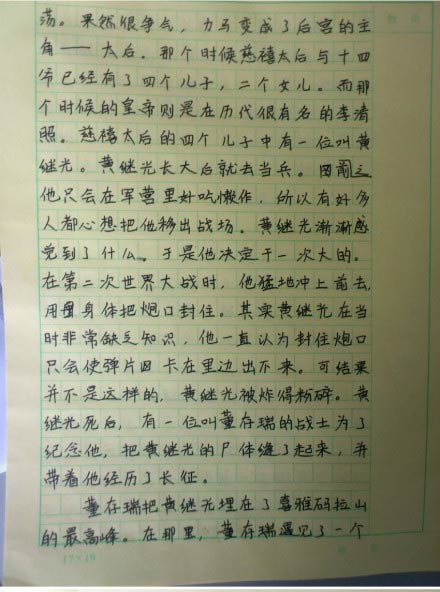 荡。果然很争气，力马变成了后宫的主
角——太后。那个时候慈禧太后与十四
爷已经有了四个儿子，二个女儿。而那
个时候的皇帝则是在历代很有名的李清
照。慈禧太后的四个儿子中有一位叫黄
继光。黄继光长大后就去当兵。因前之
他只会在军营里好吃懒作，所以有好多
人都心想把他移出战场。黄继光渐渐感
觉到了什么。于是他决定干一次大的。
在第二次世界大战时，他猛地冲上前去，
用身体把炮口封住。其实黄继光在当
时非常缺乏知识，他一直认为封住炮口
只会使弹片卡在里边出不来。可结果
并不是这样的，黄继光被炸得粉碎。黄
继光死后，有一位叫董存瑞的战士为了
纪念他，把黄继光的尸体缝了起来，并
带着他经历了长征。
董存瑞把黄继光埋在了喜雅码拉山
的最高峰。在那里，董存瑞遇见了一个